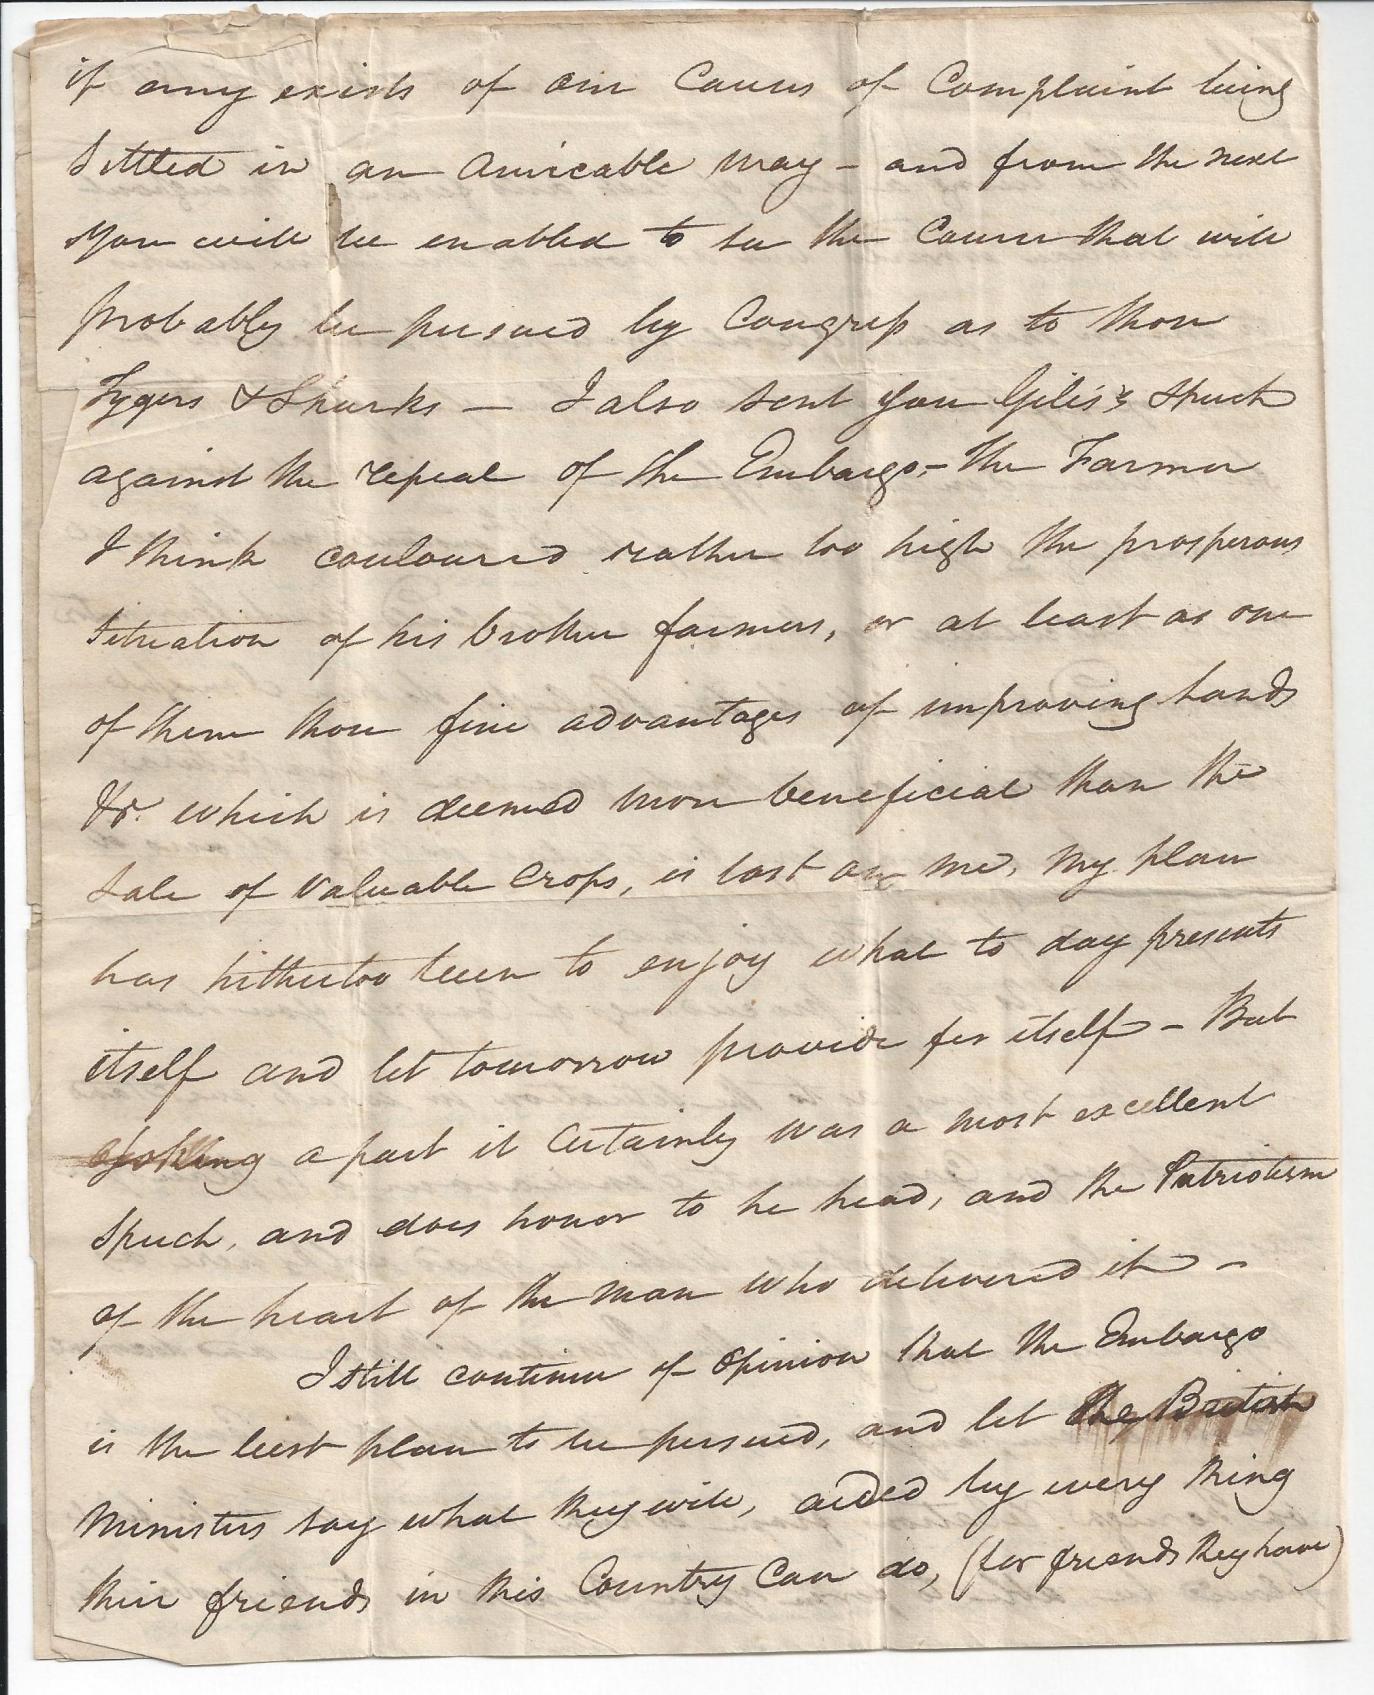 if any exists of our Causes of Complaint being
Settled in an Amicable way – and from the next
you will be enabled to see the Course that will
probably be pursued by Congress as to those
Tygers & Sharks — I also sent you Giles's Speech
against the repeal of the Embargo – the Farmer
I think couloured rather too high the prosperous
Situation of his brother farmers, or at least as one
of them those fine advantages of improving lands
&c. which is deemed more beneficial than the
Sale of Valuable Crops, is lost on me, My plan
has hithertoo been to enjoy what to day presents
itself and let tomorrow provide for itself – But
Jokeing a part it Certainly was a most excellent
Speech, and does honor to he head, and the Patriotism
of the heart of the man who delivered it –
I still continue of Opinion that the Embargo
is the best plan to be persued, and let the British
Ministers say what they will, aided by every thing
their friends in this Country Can do, (for friends they have)